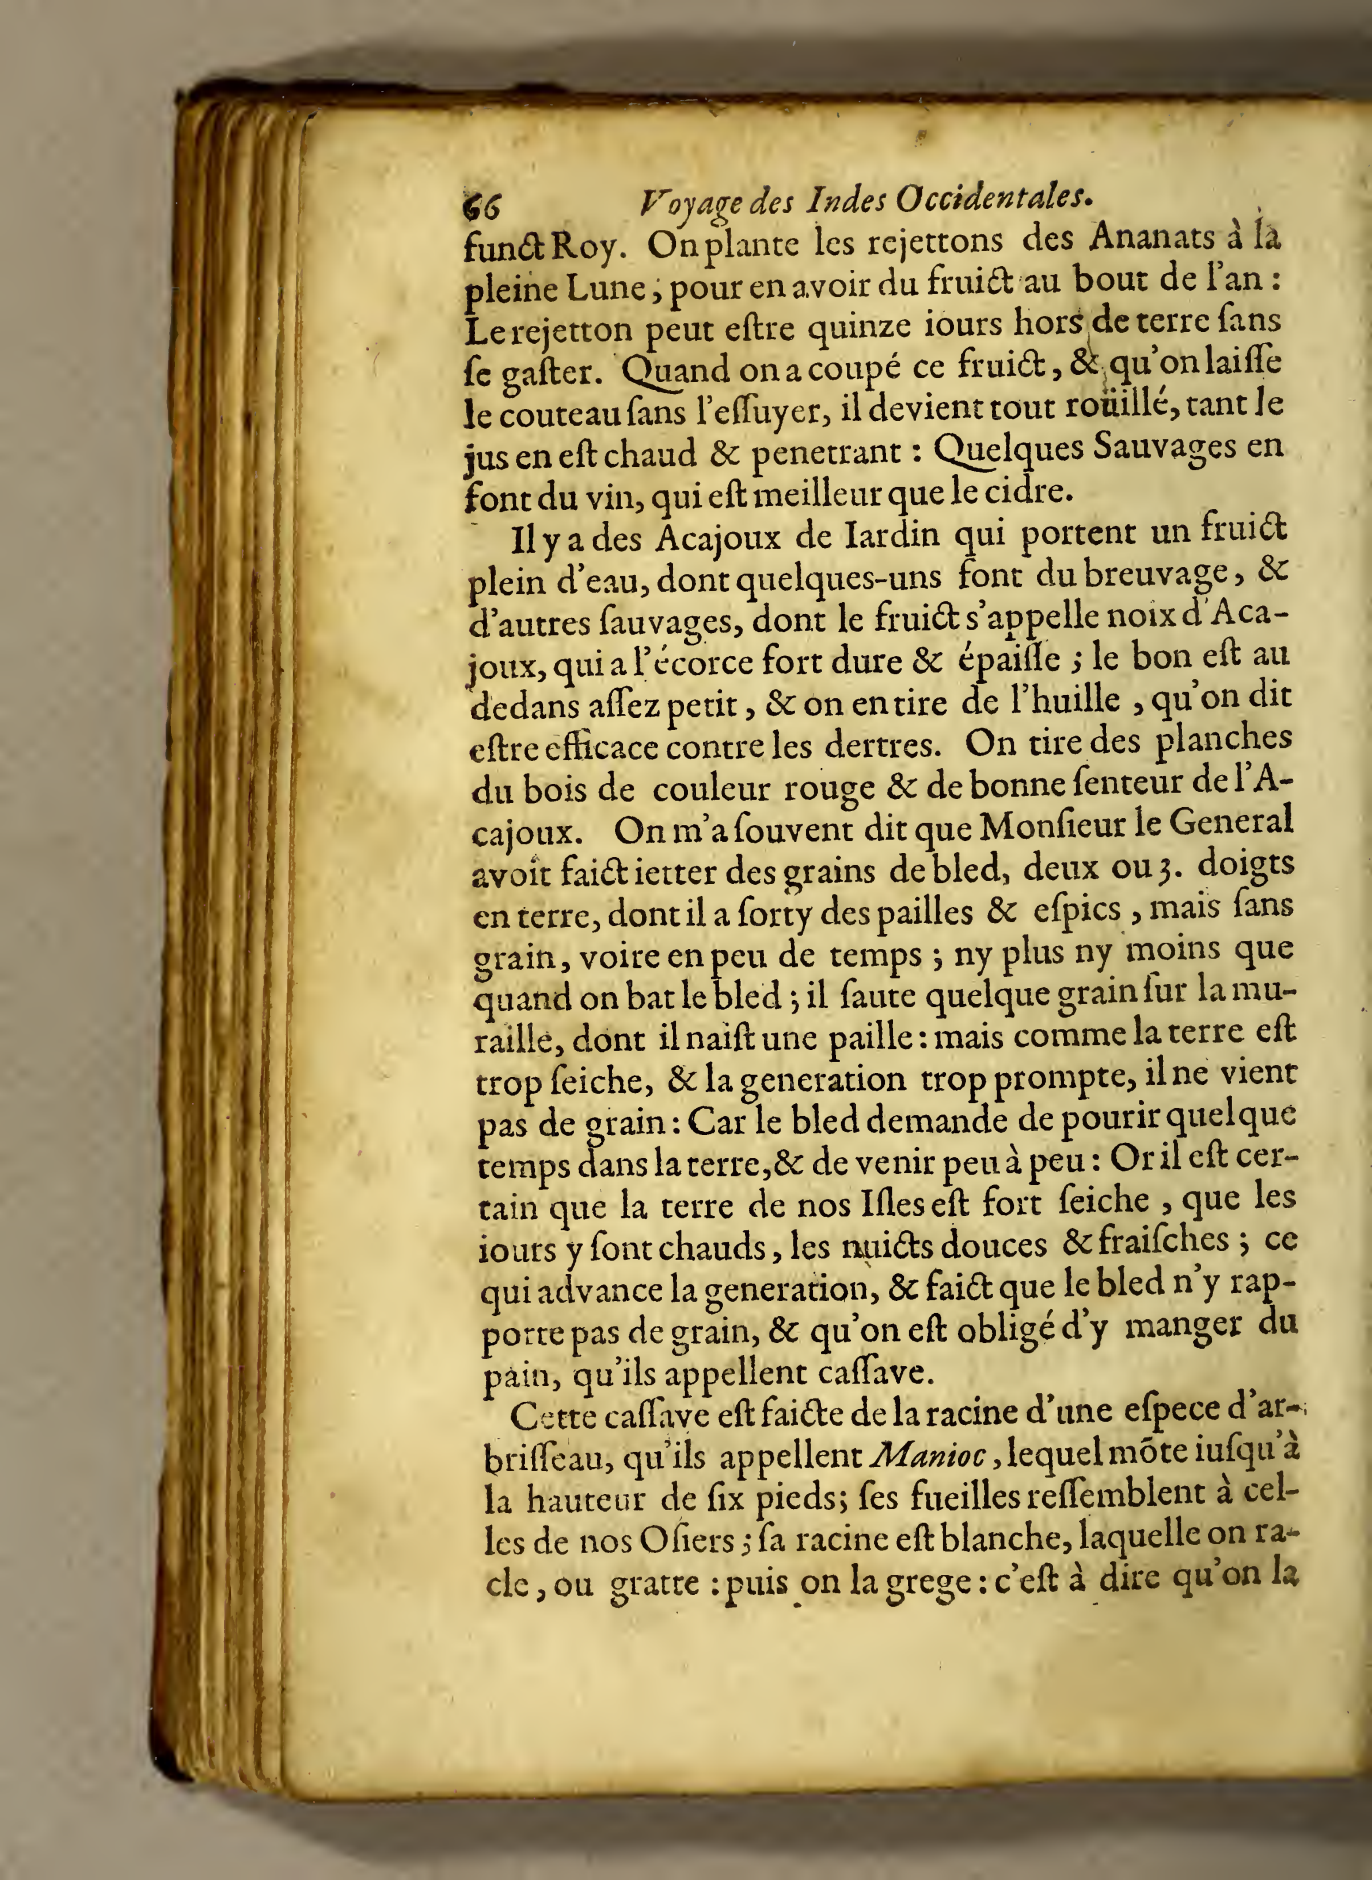 66 Voyage des Indes Occidentales.
funct Roy. On plante les rejettons des Ananats à la
pleine Lune, pour en avoir du fruict au bout de l'an :
Le rejetton peut eſtre quinze iours hors de terre ſans
ſe gaſter. Quand on a coupé ce fruict, & qu'on laiſſe
le couteau ſans l'eſſuyer, il devient tout roüillé, tant le
jus en eſt chaud & penetrant : Quelques Sauvages en
font du vin, qui eſt meilleur que le cidre.
Il y a des Acajoux de Iardin qui portent un fruict
plein d'eau, dont quelques-uns font du breuvage, &
d'autres ſauvages, dont le fruict s'appelle noix d'Aca-
joux, qui a l'écorce fort dure & épaiſſe ; le bon eſt au
dedans aſſez petit, & on en tire de l'huille , qu'on dit
eſtre efficace contre les dertres. On tire des planches
du bois de couleur rouge & de bonne ſenteur de l'A-
cajoux. On m'a ſouvent dit que Monſieur le General
avoit faict ietter des grains de bled, deux ou 3. doigts
en terre, dont il a ſorty des pailles & eſpics , mais ſans
grain, voire en peu de temps ; ny plus ny moins que
quand on bat le bled ; il ſaute quelque grain ſur la mu-
raille, dont il naiſt une paille : mais comme la terre eſt
trop ſeiche, & la generation trop prompte, il ne vient
pas de grain : Car le bled demande de pourir quelque
temps dans la terre, & de venir peu à peu : Or il eſt cer-
tain que la terre de nos Iſles eſt fort ſeiche , que les
iours y ſont chauds, les nuicts douces & fraiſches ; ce
qui advance la generation, & faict que le bled n'y rap-
porte pas de grain, & qu'on eſt obligé d'y manger du
pain, qu'ils appellent caſſave.
Cette caſſave eſt faicte de la racine d'une eſpece d'ar-
briſſeau, qu'ils appellent Manioc, lequel mõte iuſqu'à
la hauteur de ſix pieds; ſes fueilles reſſemblent à cel-
les de nos Oſiers ; ſa racine eſt blanche, laquelle on ra-
cle, ou gratte : puis on la grege : c'eſt à dire qu'on la